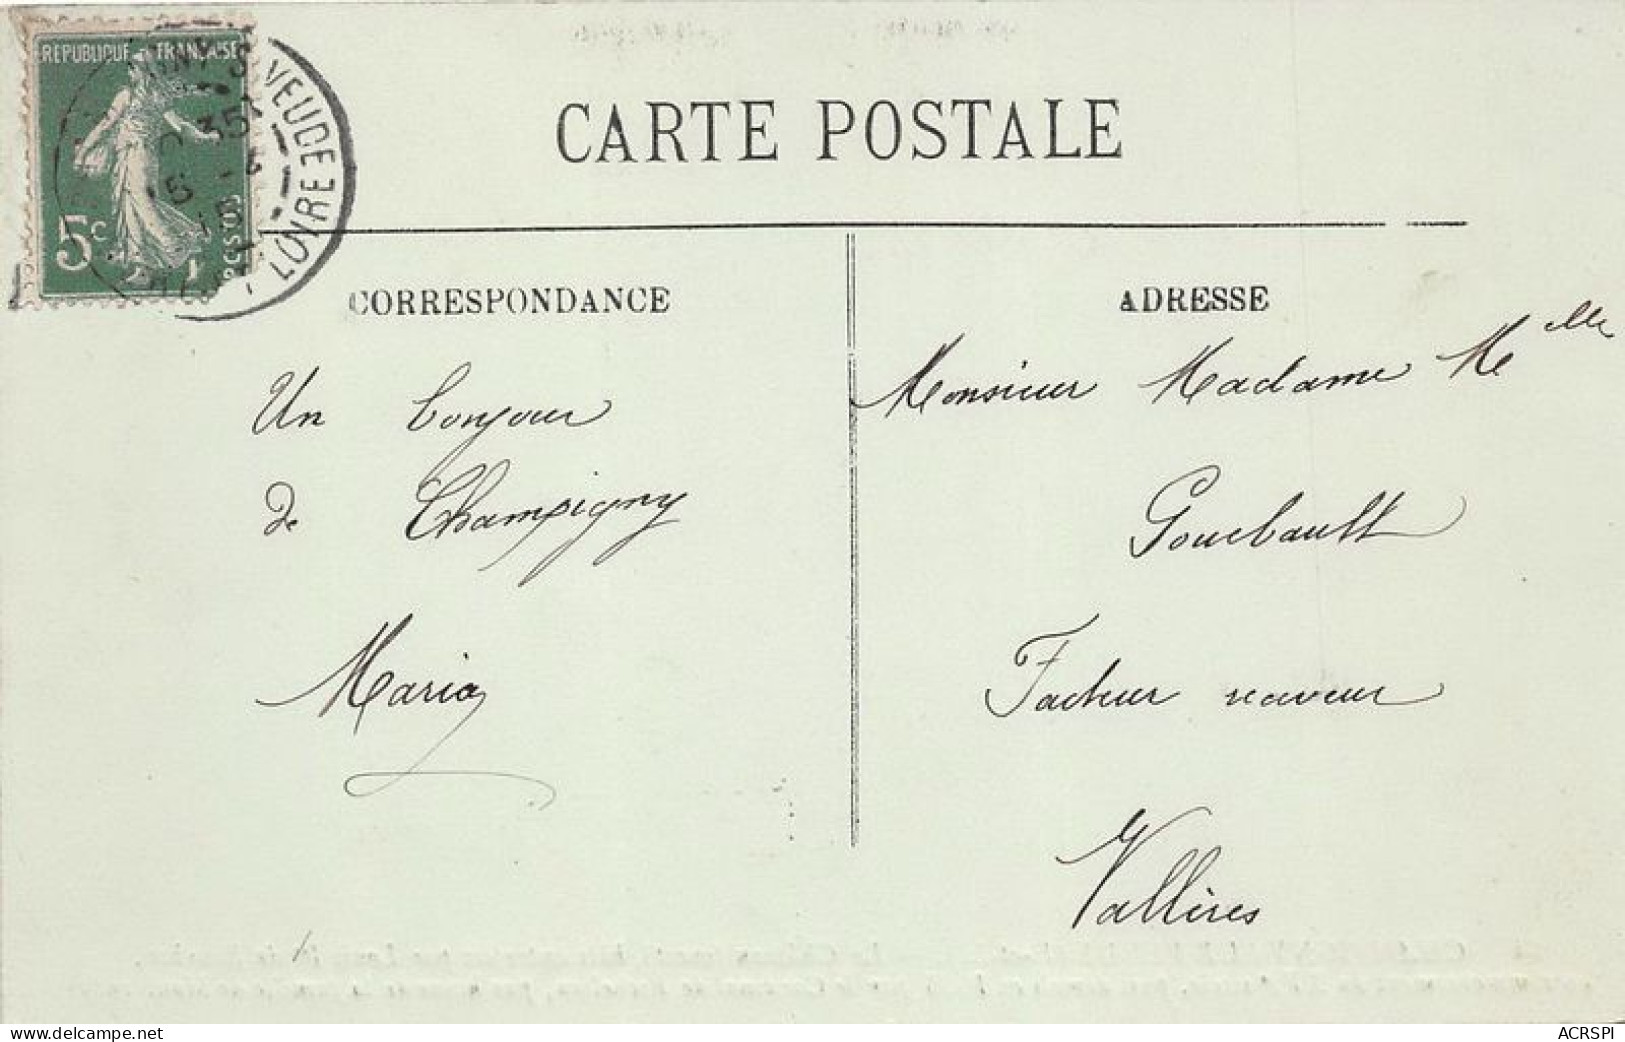 REPUBLIQUE FRANÇAISE
5c
POSTES
VEUDE
LOIRE
35
5
15
CARTE POSTALE
CORRESPONDANCE
ADRESSE
Un bonjour
de Champigny
Maria
Monsieur Madame Melle
Gouebault
Facteur
Vallères
www.delcampe.net
ACRSPI